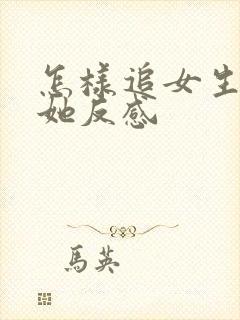 怎樣追女生
她反感
馬英